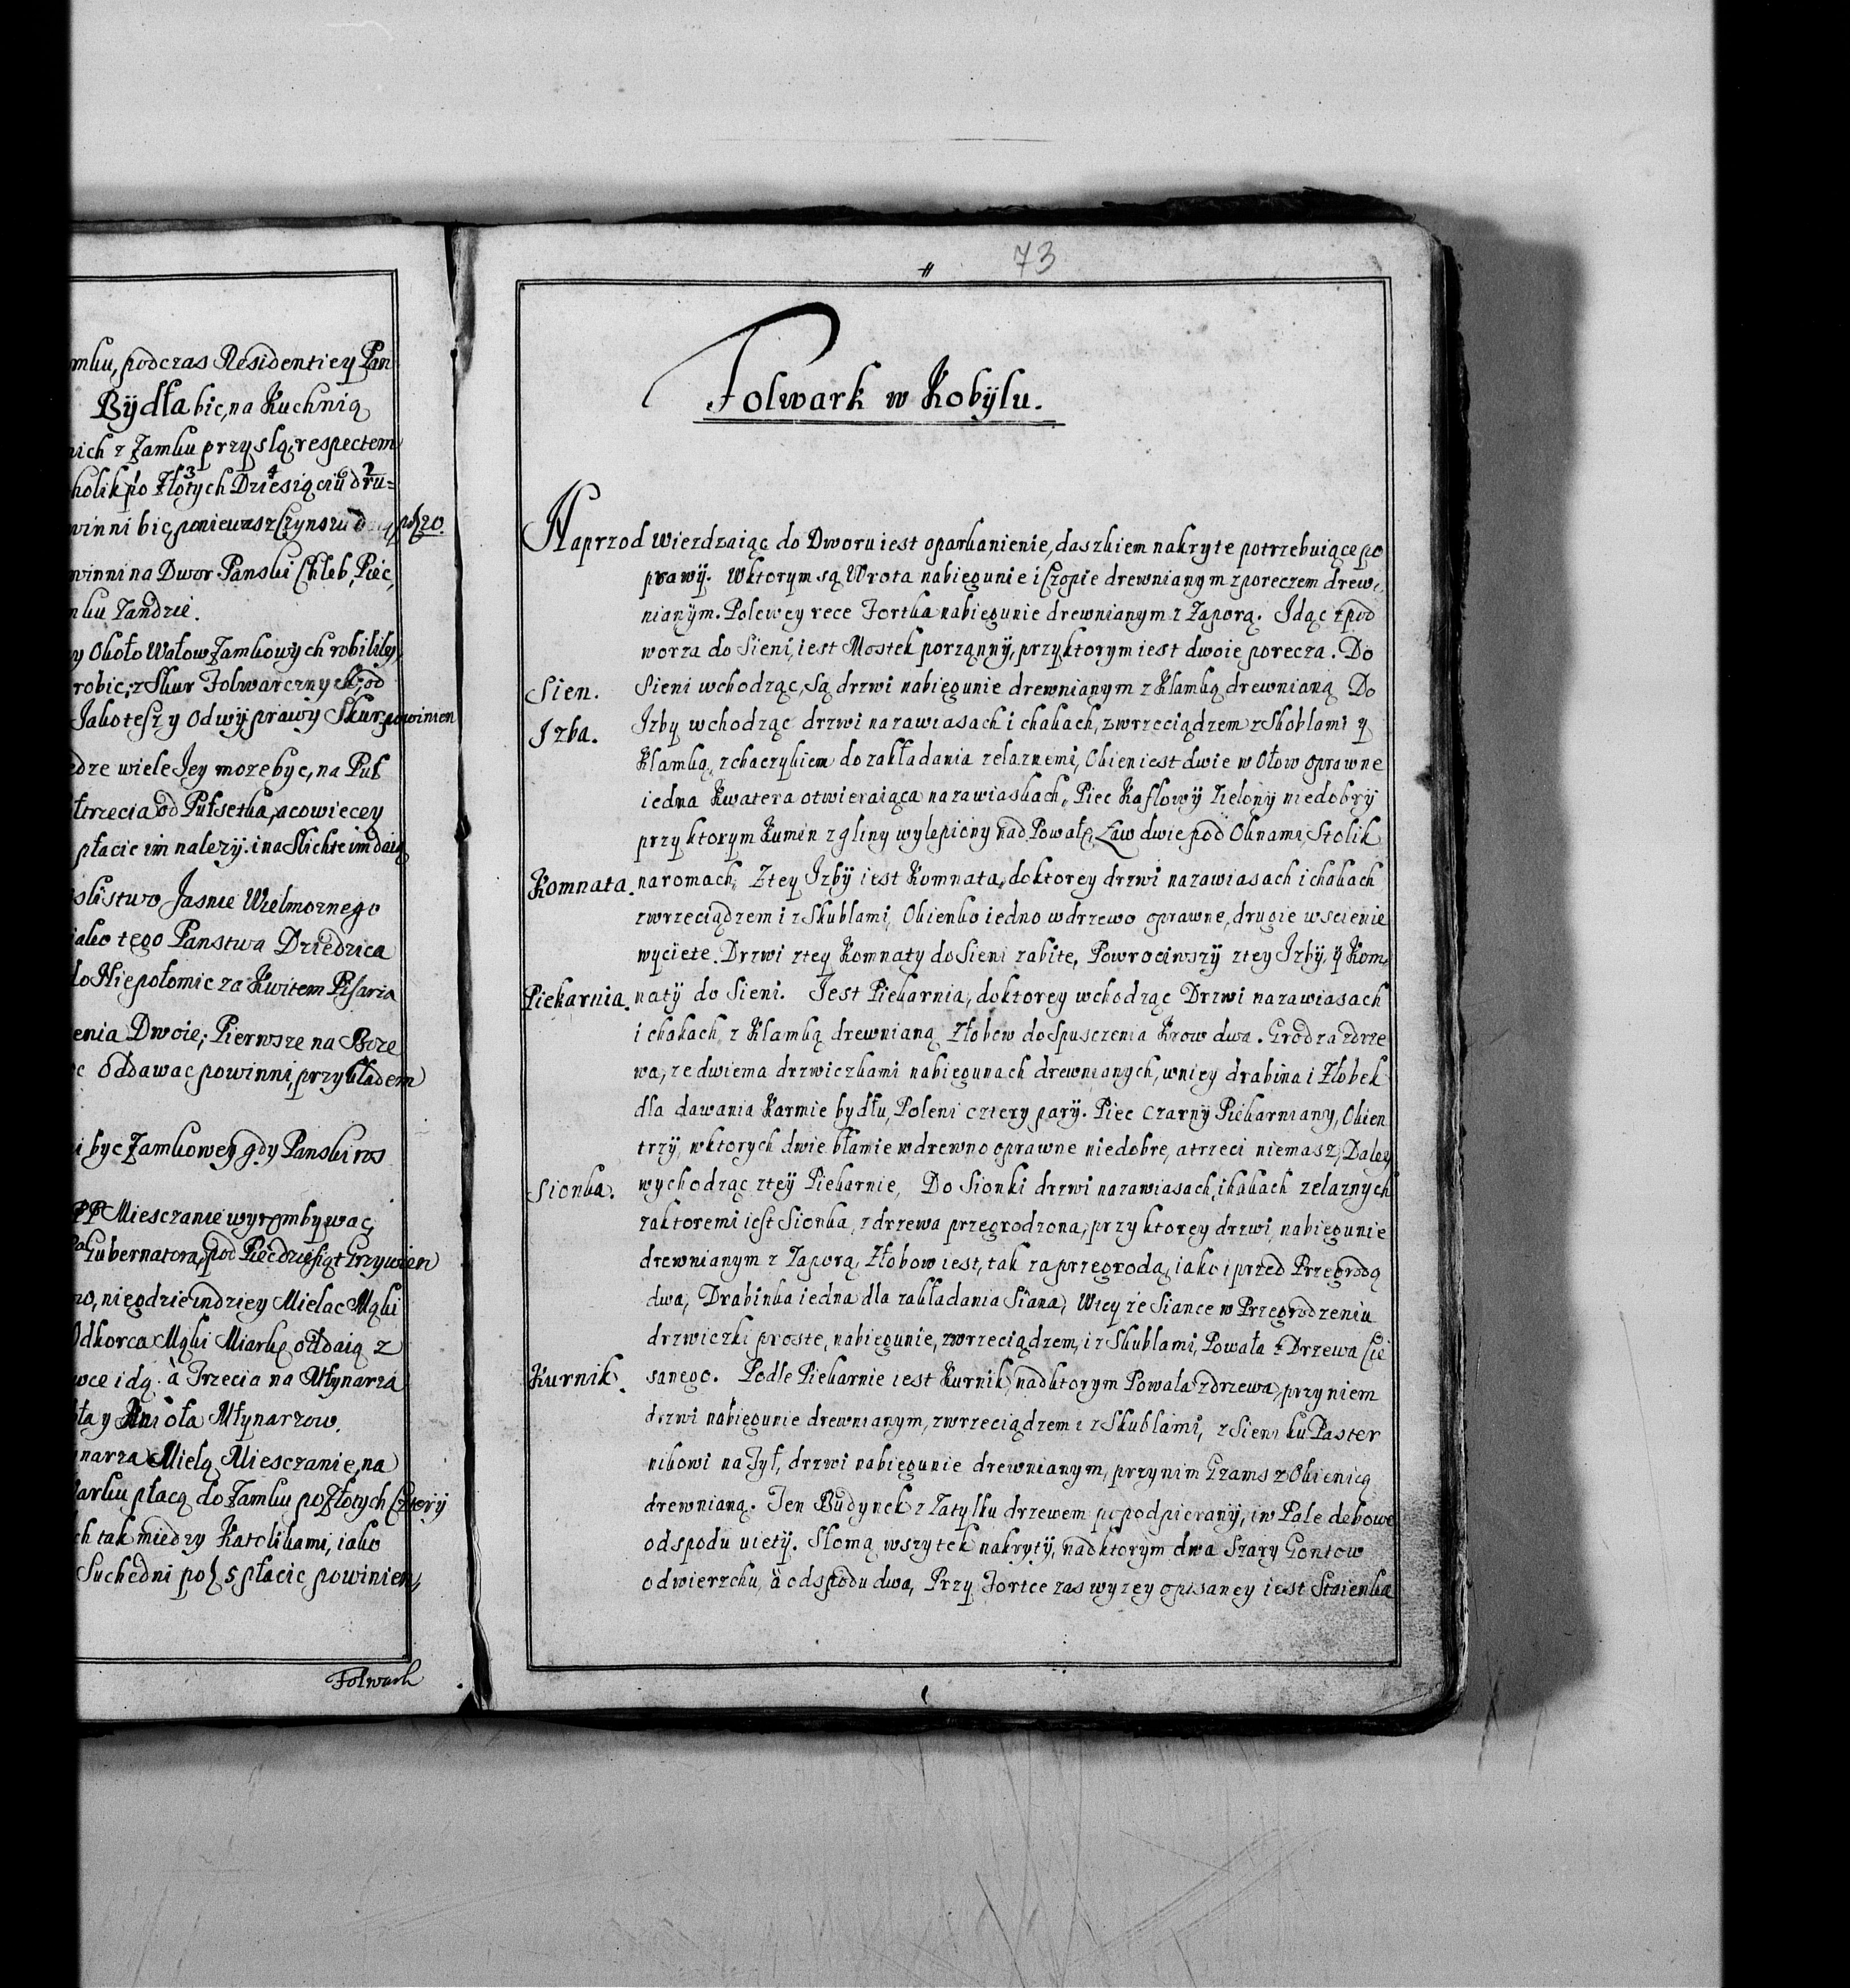 mku, podczas Residentiey Pan
Bÿdła bic, na Kuchnią
nich z Zamku przyslą, respectem
holik po Złotych Dziesiąciu dru=
winni bic, poniewasz Czynszu
winni na Dwor Panski Chleb, Piec,
mku Zandzie.
y Około Wałow Zamkowych robiliby
robic, z Skur Folwarcznych, od
Jako tesz y od wÿprawy Skur, powinien
edze wiele Jey moze byc, na Puł
trzecia od Pułsetka, a co wiecey
płacic im nalezÿ. i na Slichte im daią
slistwo Jasnie Wielmoznego
iako tego Panstwa Dziedzica
do Niepołomic za Kwitem Pisarza
enia Dwoie; Pierwsze na Boze
c Oddawac powinni, przykładem
i byc Zamkowey gdy Panski ros
PP Miesczanie wyrombywac,
Pa Gubernatora, pod Piećdziesiąt Grzywien
no, niegdzie indziey Mielac Mąki
Odkorca Mąki Miarkę oddaią z
wce idą. à Trzecia na Młynarza
ła y Anioła Młynarzow.
narza Mielą Miesczanie, na
arku płacą do Zamku po Złotych Czterÿ
ch tak miedzy Katolikami, iako
Suchedni po ƒ 5 płacic powinien,
Folwark
73
Folwark w Kobÿlu.
Naprzod wiezdzaiąc do Dworu iest oparkanienie, daszkiem nakryte potrzebuiące po
prawÿ. Wktorym są Wrota nabiegunie i Czopie drewnianym z poreczem drew,
nianÿm. Polewey rece Fortka nabiegunie drewnianym z Zaporą. Idąc z pod
worza do Sieni, iest Mostek porządnÿ, przyktorym iest dwoie porecza. Do
Sien. Sieni wchodząc, są drzwi nabiegunie drewnianym z Klamką drewnianą Do
Izba. Izby wchodząc drzwi nazawiasach i chakach, zwrzeciądzem z Skoblami y
Klamką, z chaczykiem do zakładania zelaznemi, Okien iest dwie w Ołow oprawne
iedna Kwatera otwieraiąca nazawiaskach, Piec Kaflowÿ Zielonÿ niedobrÿ
przyktorym Kumin z gliny wylepiony nad Powałę, Ław dwie pod Oknami, Stolik
Komnata. naromach, Ztey Izbÿ iest Komnata, doktorey drzwi nazawiasach i chakach
zwrzeciądzem i z Skublami, Okienko iedno wdrzewo oprawne, drugie wscienie
wyciete. Drzwi ztey Komnaty do Sieni zabite, Powrociwszÿ ztey Izbÿ, ÿ Kom,
Piekarnia. natÿ do Sieni. Jest Piekarnia, doktorey wchodząc Drzwi nazawiasach
i chakach z Klamką drewnianą Złobow do Spusczenia Krow dwa. Grodza zdrze
wa, ze dwiema drzwiczkami nabiegunach drewnianych, wniey drabina i Złobek
dla dawania Karmie bydłu, Poleni cztery parÿ. Piec czarnÿ Piekarniany, Okien
trzÿ, wktorych dwie błamie wdrewno oprawne niedobre, a trzeci niemasz, Daley
Sionka. wychodząc zteÿ Piekarnie, Do Sionki drzwi nazawiasach, i hakach zelaznych
zaktoremi iest Sionka, z drzewa przegrodzona, przyktorey drzwi, nabiegunie
drewnianym z Zaporą, Złobow iest, tak zaprzegrodą, iako i przed Przegrodą
dwa, Drabinka iedna dla zakładania Siana, Wtey ze Siance w Przegrodzeniu
drzwiczki proste, nabiegunie, zwrzeciądzem, i z Skublami, Powała z Drzewa Cie
Kurnik. sanego. Podle Piekarnie iest Kurnik, nadktorym Powała zdrzewa, przyniem
drzwi nabiegunie drewnianym, zwrzeciądzem i z Skublami, z Sieni ku Paster
nikowi na Tył, drzwi nabiegunie drewnianym, przynim Grams z Okienicą
drewnianą. Ten Budynek z Zatyłku drzewem popodpieranÿ, i w Pale debowe
odspodu uietÿ. Słomą wszytek nakrytÿ, nadktorym dwa Szary Gontow
odwierzchu, à odspodu dwa, Przy Fortce zas wyzey opisaney iest Staienka